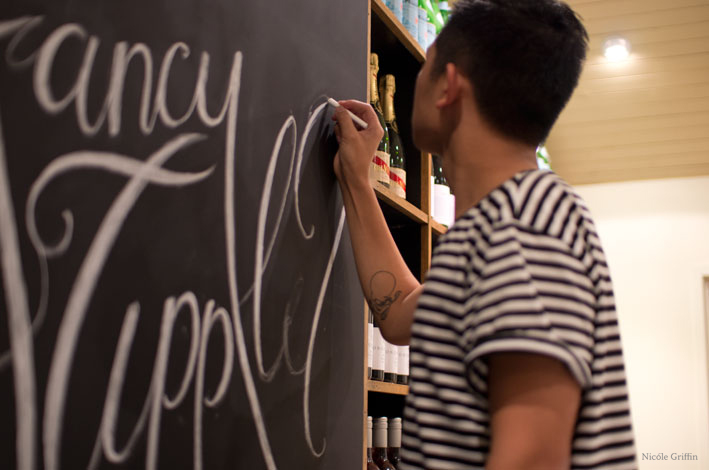 Fancy
Tipple
Nicóle Griffin